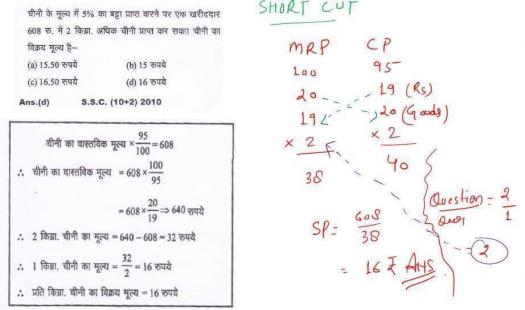 चीनी के मूल्य में 5% का बट्टा प्राप्त करने पर एक खरीददार
608 रु. में 2 किग्रा. अधिक चीनी प्राप्त कर सका। चीनी का
विक्रय मूल्य है–
(a) 15.50 रुपये (b) 15 रुपये
(c) 16.50 रुपये (d) 16 रुपये
Ans.(d) S.S.C. (10+2) 2010
चीनी का वास्तविक मूल्य × 95/100 = 608
∴ चीनी का वास्तविक मूल्य = 608 × 100/95
= 608 × 20/19 ⇒ 640 रुपये
∴ 2 किग्रा. चीनी का मूल्य = 640 – 608 = 32 रुपये
∴ 1 किग्रा. चीनी का मूल्य = 32/2 = 16 रुपये
∴ प्रति किग्रा. चीनी का विक्रय मूल्य = 16 रुपये
SHORT CUT
MRP CP
100 95
20 19 (Rs)
19 20 (Goods)
× 2 × 2
38 40
Question = 2/1
2
SP = 608/38
= 16 ₹ Ans